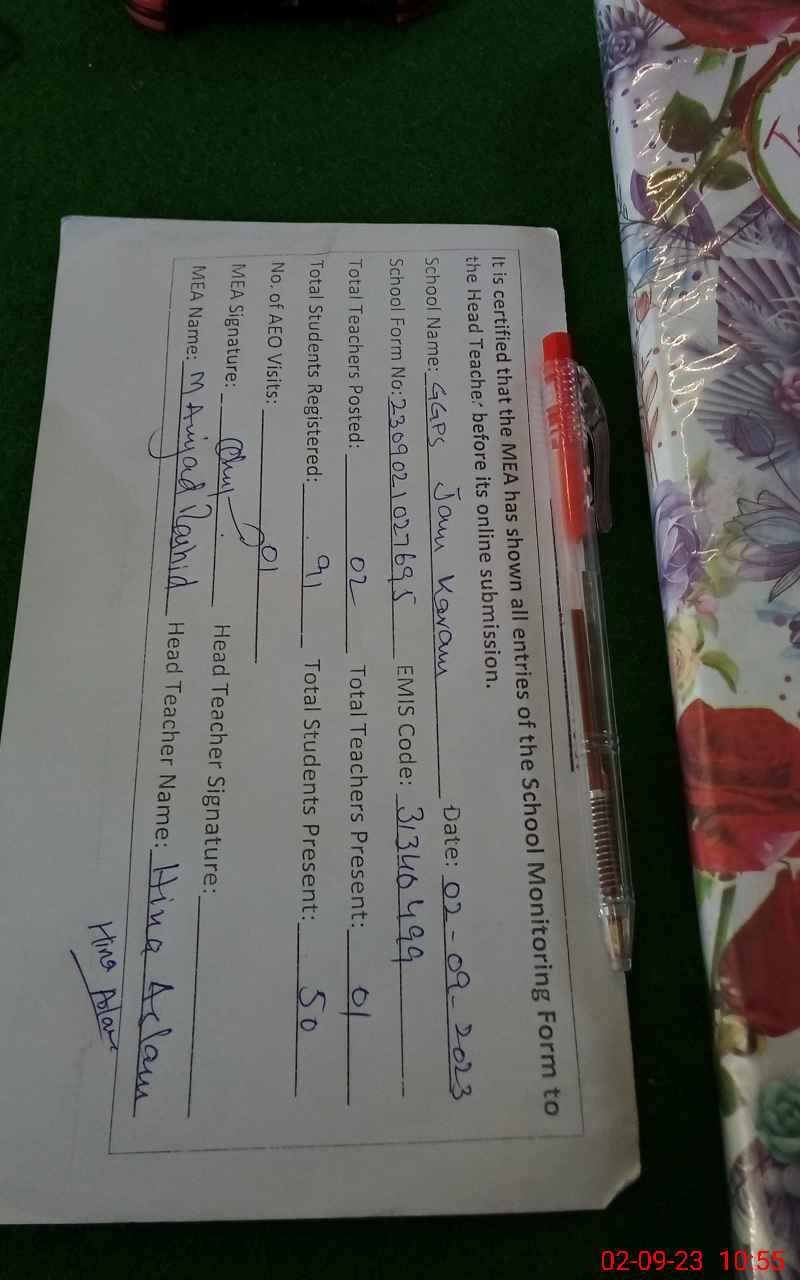 It is certified that the MEA has shown all entries of the School Monitoring Form to
the Head Teacher before its online submission.
School Name: GGPS Jam Karam Date: 02-09-2023
School Form No: 2309021027695 EMIS Code: 31340499
Total Teachers Posted: 02 Total Teachers Present: 01
Total Students Registered: 91 Total Students Present: 50
No. of AEO Visits: 01
MEA Signature: Head Teacher Signature:
MEA Name: M Amjad Rashid Head Teacher Name: Hina Aslam
Hina Aslam
02-09-23 10:55